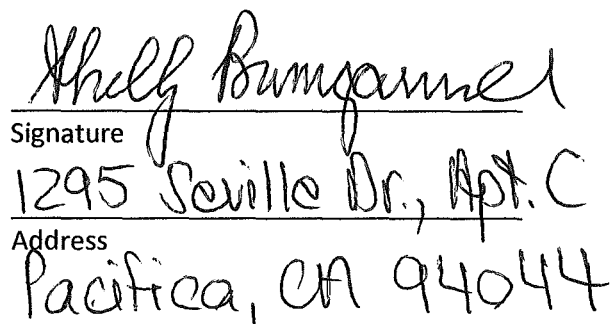 Shelly Bumgarner
Signature
1295 Seville Dr., Apt. C
Address
Pacifica, CA 94044